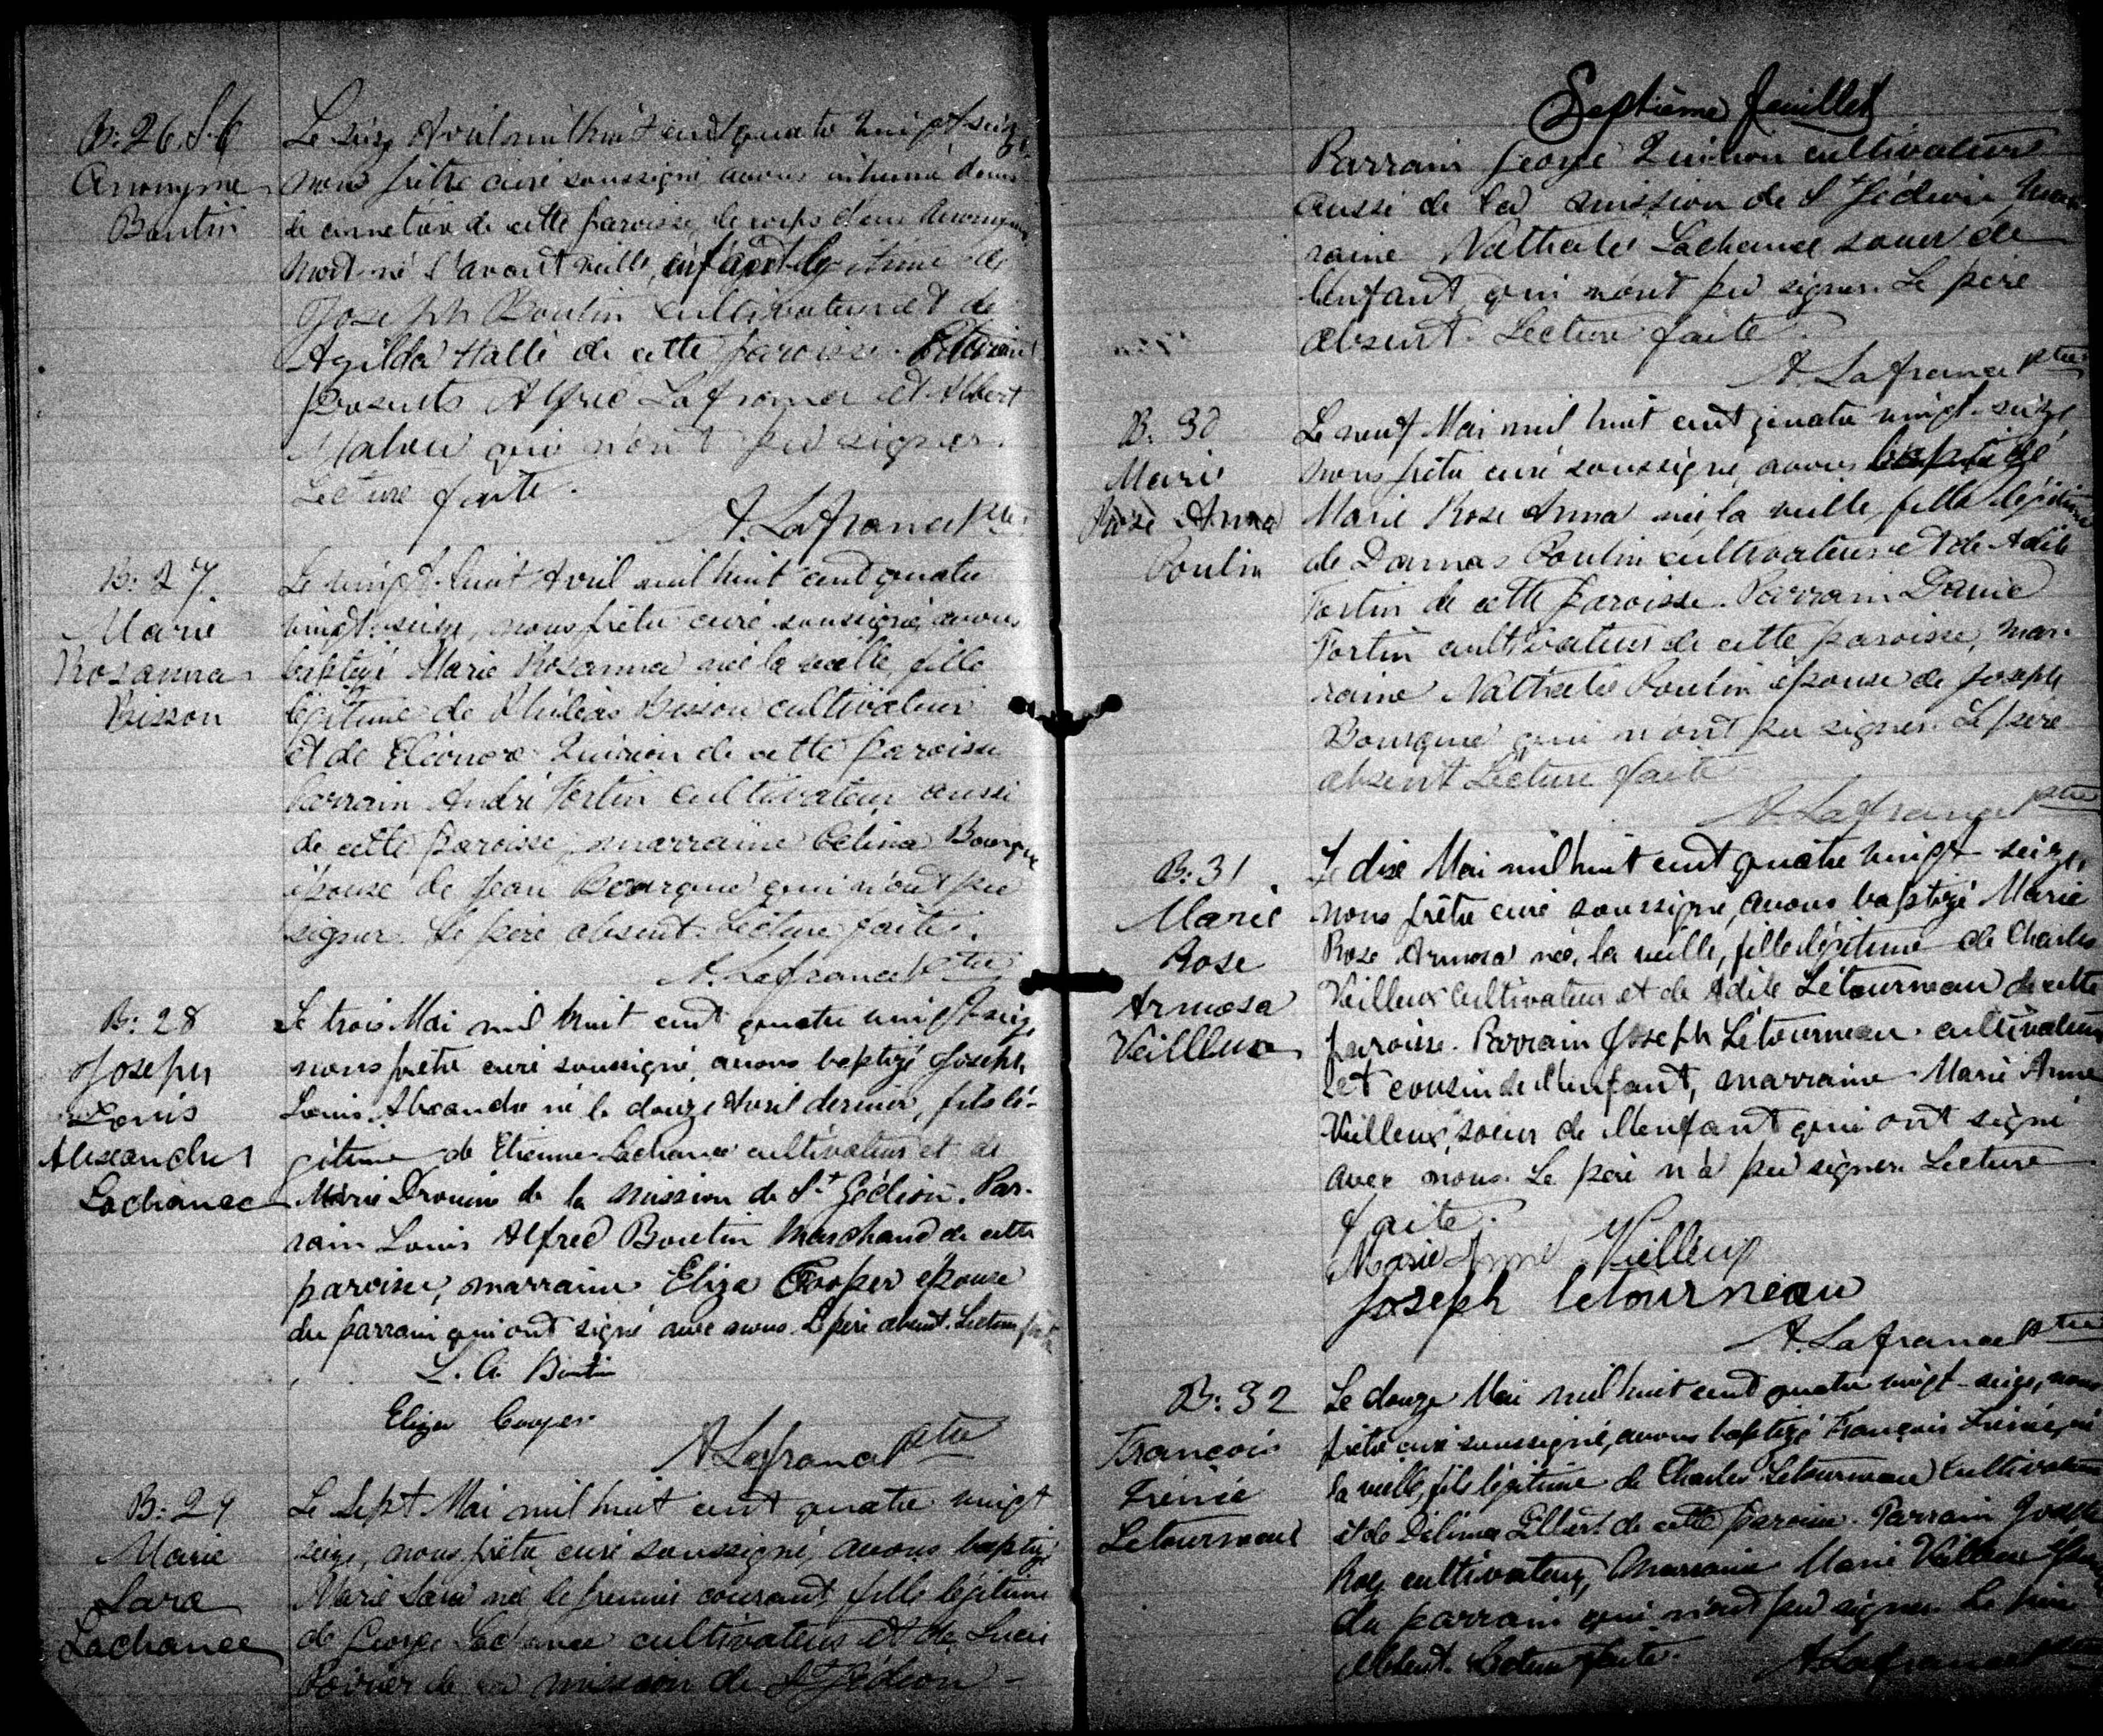 B. 26. S. 6
Anonyme
Boutin
Le seize Avril mil huit cent quatre vingt seize
nous prêtre curé soussigné avons inhumé dans
le cimetière de cette paroisse, le corps d'un Anonyme
mort-né l'avant veille, enfant légitime de
Joseph Boutin cultivateur et de
Azilda Hallé de cette paroisse. Etaient
présents Alfred Lafrance et Albert
qui n'ont pu signer.
Lecture faite.
A. Lafrance Ptre
B: 27
Marie
Rosanna
Bisson
Le vingt-huit Avril mil huit cent quatre
vingt-seize, nous prêtre curé soussigné, avons
baptizé Marie Rosanna née la veille, fille
légitime de Philéas Bisson cultivateur
et de Eléonore Quirion de cette paroisse
Parrain André Fortin cultivateur aussi
de cette paroisse, marraine Célina Bourque
épouse de Jean Bourque qui n'ont pu
signer. Le père absent. Lecture faite.
A. Lafrance Ptre
B: 28
Joseph
Louis
Alexandre
Lachance
Le trois Mai mil huit cent quatre vingt seize
nous prêtre curé soussigné avons baptizé Joseph
Louis Alexandre né le douze Avril dernier, fils lé-
gitime de Etienne Lachance cultivateur et de
Marie Drouin de la mission de St Gédéon. Par-
rain Louis Alfred Boutin Marchand de cette
paroisse, marraine Eliza Cooper épouse
du parrain qui ont signé avec nous. Le père absent. Lecture faite
L. A. Boutin
Eliza Cooper
A. Lafrance Ptre
B: 29
Marie
Sara
Lachance
Le sept Mai mil huit cent quatre vingt
seize, nous prêtre curé soussigné, avons baptizé
Marie Sara née le premier courant, fille légitime
de George Lachance cultivateur et de Lucie
Poirier de la mission de St Gédéon -
Septième feuillet
Parrain George Quirion cultivateur
aussi de la mission de St Gédéon, mar-
raine Nathalie Lachance soeur de
l'enfant, qui n'ont pu signer. Le père
absent. Lecture faite.
A. Lafrance Ptre
B. 30
Marie
Rose Anna
Poulin
Le neuf Mai mil huit cent quatre vingt-seize,
nous prêtre curé soussigné, avons baptizé
Marie Rose Anna née la veille, fille légitime
de Damas Poulin cultivateur et de Adèle
Fortin de cette paroisse. Parrain
Fortin cultivateur de cette paroisse, mar-
raine Nathalie Poulin épouse de Joseph
Bourque qui n'ont pu signer. Le père
absent Lecture faite
A. Lafrance Ptre
B: 31
Marie
Rose
Armosa
Veilleux
Le dix Mai mil huit cent quatre vingt seize,
nous prêtre curé soussigné, avons baptizé Marie
Rose Armosa née, la veille, fille légitime de Charles
Veilleux cultivateur et de Adèle Létourneau de cette
paroisse. Parrain Joseph Létourneau cultivateur
et cousin de l'enfant, marraine Marie Anne
Veilleux, soeur de l'enfant qui ont signé
avec nous. Le père n'a pu signer. Lecture
faite.
Marie Anne Veilleux
Joseph letourneau
A. Lafrance Ptre
B: 32
François
Irénée
Letourneau
Le douze Mai mil huit cent quatre vingt-seize, nous
prêtre curé soussigné, avons baptizé François Irénée, né
la veille, fils légitime de Charles Letourneau cultivateur
et de Délima Gilbert de cette paroisse. Parrain Joseph
Roy cultivateur, Marraine Marie Veilleux épouse
du parrain qui n'ont pu signer. Le père
absent. Lecture faite.
A. Lafrance Ptre